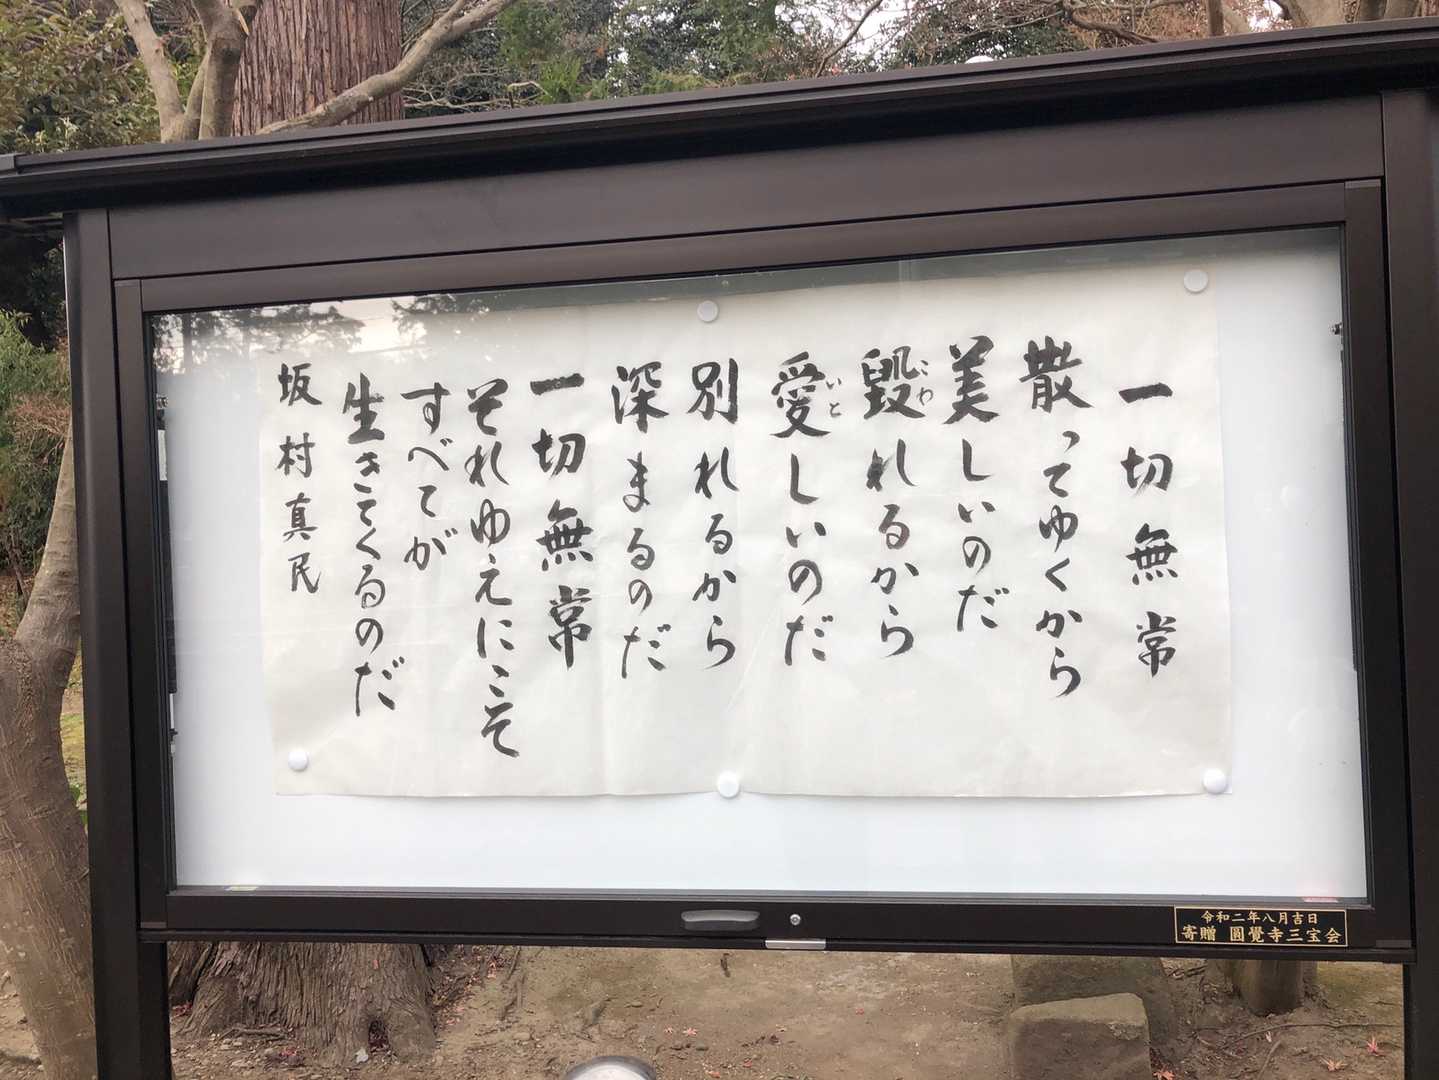 一切無常
散ってゆくから
美しいのだ
毀れるから
こわ
愛しいのだ
いと
別れるから
深まるのだ
一切無常
それゆえにこそ
すべてが
生きてくるのだ
坂村真民
令和二年八月吉日
寄贈 圓覺寺三宝会